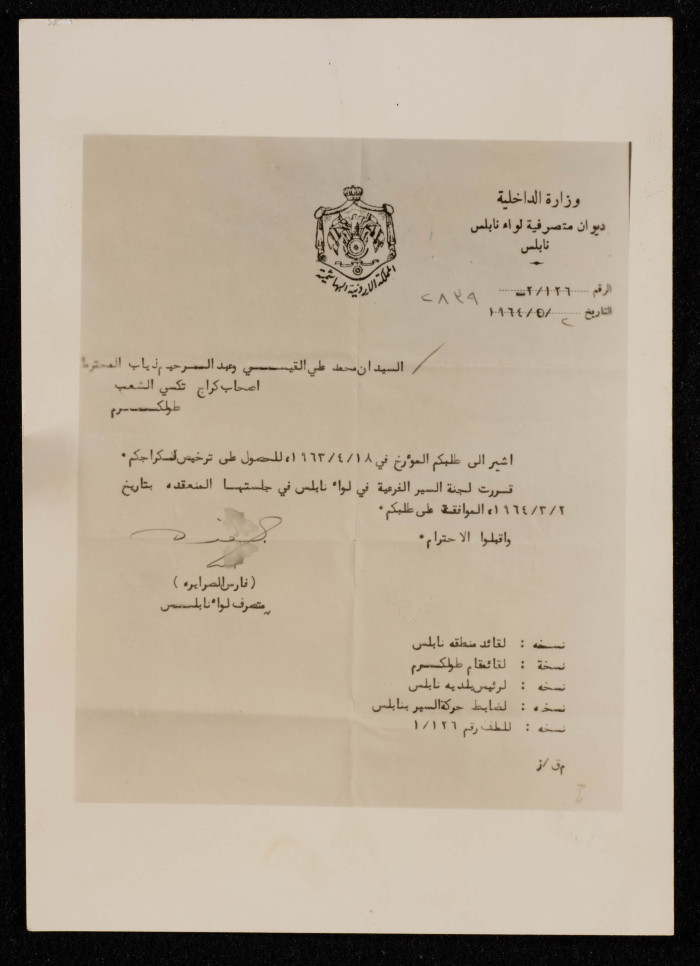 وزارة الداخلية
ديوان متصرفية لواء نابلس
نابلس
المملكة الاردنية الهاشمية
الرقم ٢/١٢٦
٢٨٣٩
التاريخ ٢/٥/١٩٦٤
السيدان محمد علي القيسي وعبد الرحيم ذياب المحترما
اصحاب كراج تكسي الشعب
طولكرم
اشير الى طلبكم المؤرخ في ١٩٦٣/٤/١٨ للحصول على ترخيص لكراجكم.
قررت لجنة السير الفرعية في لواء نابلس في جلستها المنعقده بتاريخ
١٩٦٤/٣/٢ الموافقة على طلبكم.
واقبلوا الاحترام.
(فارس الصرايره)
متصرف لواء نابلس
نسخه : لقائد منطقه نابلس
نسخة : لقائمقام طولكرم
نسخه : لرئيس بلديه نابلس
نسخه : لضابط حركة السير بنابلس
نسخه : للملف رقم ١/١٢٦
م ق/ز